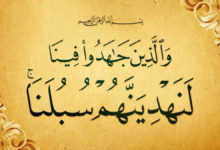 بسم الله الرحمن الرحيم
وَالَّذِينَ جَاهَدُوا فِينَا
لَنَهْدِيَنَّهُمْ سُبُلَنَا ۚ